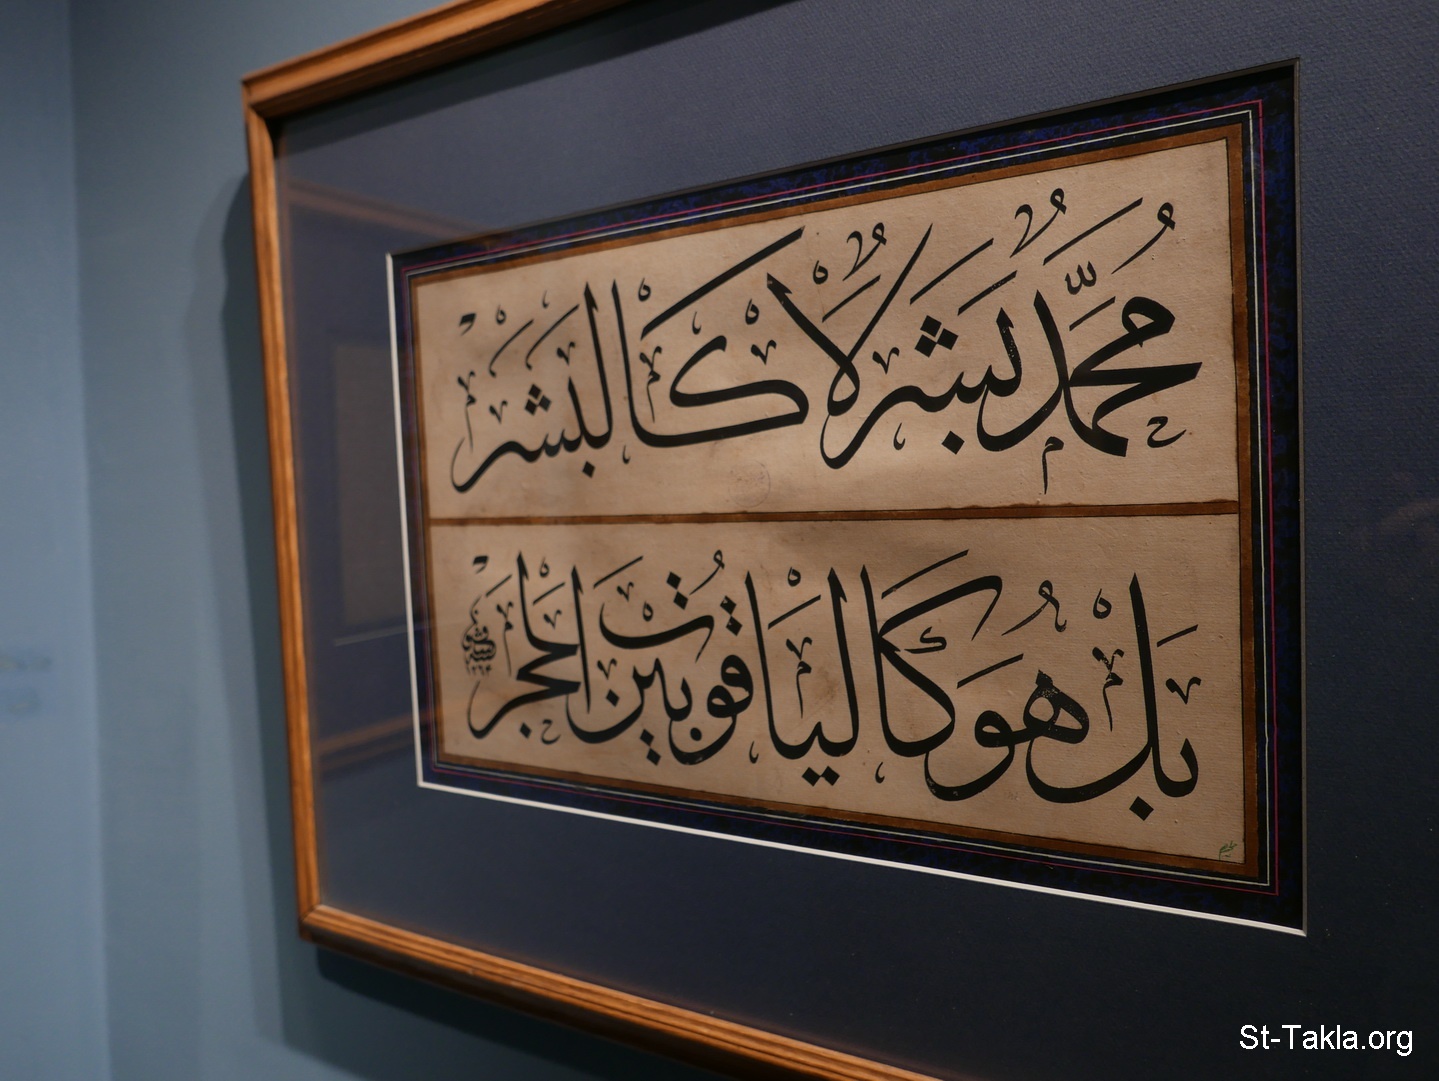 مُحَمَّدٌ بَشَرٌ لَا كَالْبَشَرِ
بَلْ هُوَ كَالْيَاقُوتِ بَيْنَ الْحَجَرِ
St-Takla.org